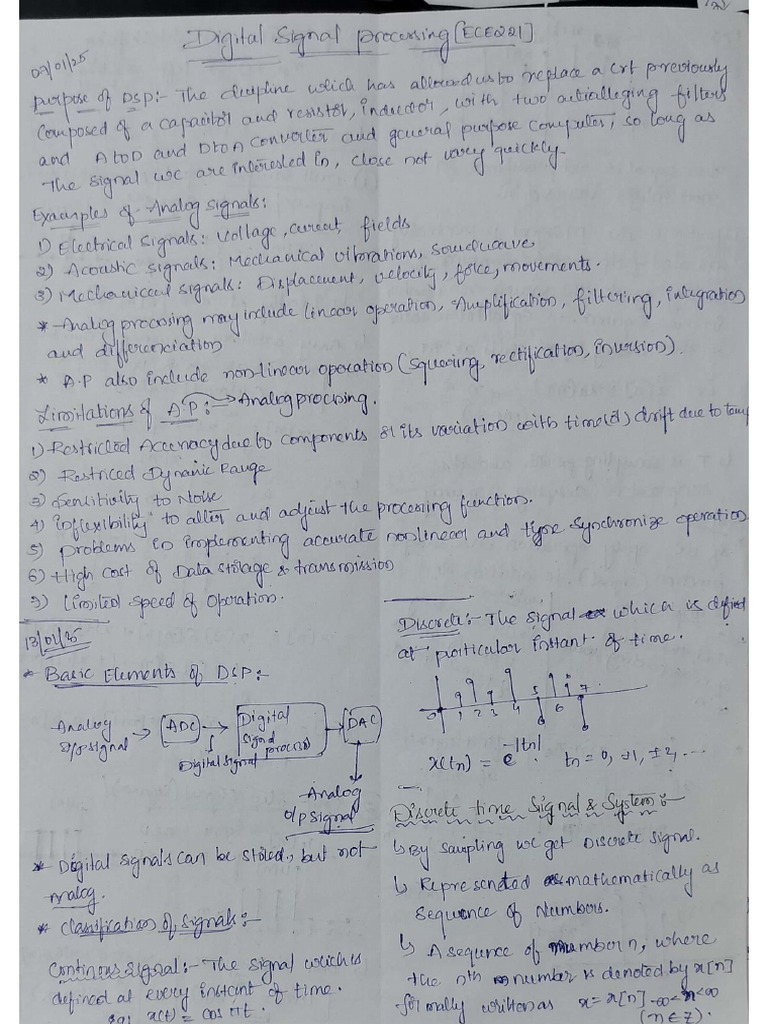 Digital Signal Processing [ECE221]
07/01/25
Purpose of DSP:- The discipline which has allowed us to replace a crt previously
Composed of a capacitor and resistor, inductor, with two antialleging filters
and A to D and D to A Converter and general purpose computer, so long as
The signal we are interested in, close not vary quickly.
Examples of Analog signals:
1) Electrical signals: voltage, current, fields
2) Acoustic signals: Mechanical vibrations, soundwave
3) Mechanical signals: Displacement, velocity, force, movements.
* Analog processing may include linear operation, Amplification, filtering, integration
and differenciation
* A.P also include non-linear operation (squaring, rectification, inversion).
Limitations of A P:- → Analog processing.
1) Restricted Accuracy due to components & its variation with time (2) drift due to temp
2) Restriced Dynamic Range
3) Sensitivity to Noise
4) inflexibility to alter and adjust the processing function.
5) problems in implementing accurate nonlinear and type Synchronize operation
6) High cost of Data storage & transmission
7) Limited speed of operation.
13/01/25
* Basic Elements of DSP:-
Analog
I/P signal → ADC → Digital Signal process → DAC
Digital signal
Analog
O/P signal
* Digital signals can be stored, but not
analog.
* Classification of signals:-
Continous signal:- The signal which is
defined at every instant of time.
eg: x(t) = cos πt.
Discrete:- The signal which is defined
at particular instant of time.
0 1 2 3 4 5 6 7
x(tn) = e^-|tn| tn = 0, ±1, ±2, ...
Discrete time Signal & System:-
↳ By sampling we get Discrete signal.
↳ Represended as mathematically as
sequence of Numbers.
↳ A sequnce of number n, where
the nth number is denoted by x[n]
formally written as x = x[n] -∞<n<∞
(n ∈ Z).